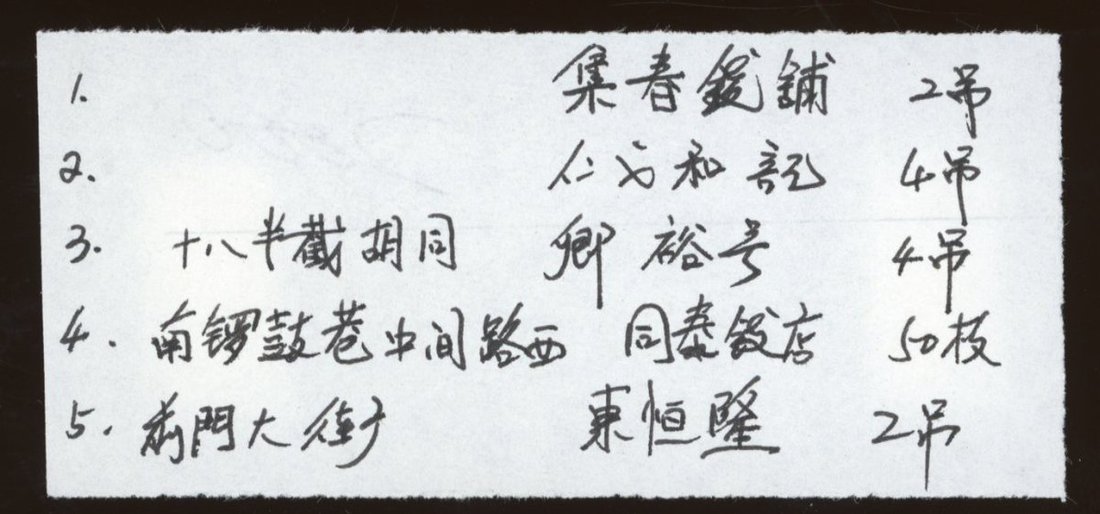 1. 集春鏡舖 2吊
2. 仁和記 4吊
3. 十八半截胡同 卿裕号 4吊
4. 南锣鼓巷中间路西 同泰饭店 50枝
5. 前門大街 東恒隆 2吊